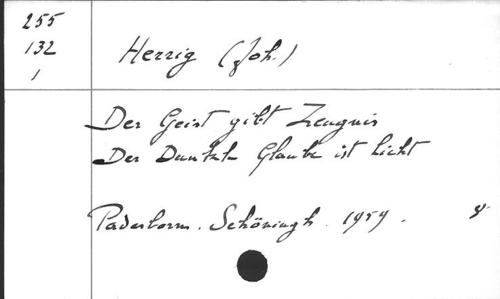 255
132
1
Herrig (Joh.)
Der Geist gibt Zeugnis
Der Dunkle Glaube ist Licht
Paderborn. Schöningh. 1959.